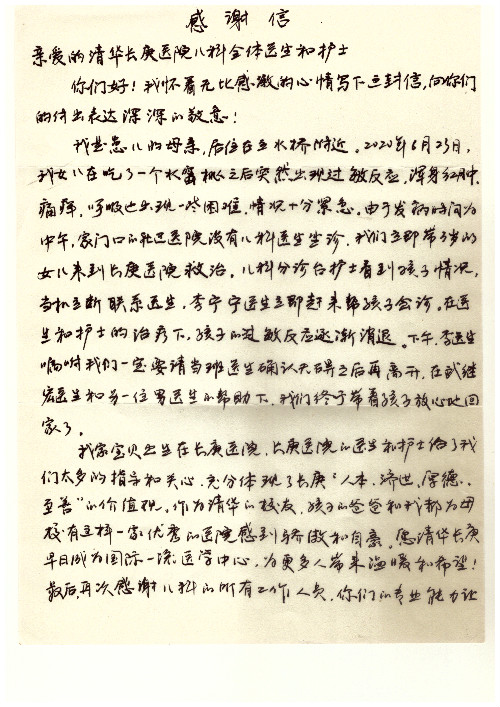 感谢信
亲爱的清华长庚医院儿科全体医生和护士
你们好！我怀着无比感激的心情写下这封信，向你们
的付出表达深深的敬意！
我是患儿的母亲，居住在立水桥附近。2020年6月23日，
我女儿在吃了一个水蜜桃之后突然出现过敏反应，浑身红肿
痛痒，呼吸也出现一些困难，情况十分紧急。由于发病时间为
中午，家门口的社区医院没有儿科医生坐诊，我们立即带3岁的
女儿来到长庚医院救治。儿科分诊台护士看到孩子情况，
当机立断联系医生，李宁宁医生立即赶来帮孩子会诊。在医
生和护士的治疗下，孩子的过敏反应逐渐消退。下午，李医生
嘱咐我们一定要请当班医生确认无碍之后再离开，在武继
宏医生和另一位男医生的帮助下，我们终于带着孩子放心地回
家了。
我家宝贝出生在长庚医院，长庚医院的医生和护士给了我
们太多的指导和关心，充分体现了长庚“人本、济世、厚德、
至善”的价值观。作为清华的校友，孩子的爸爸和我都为母
校有这样一家优秀的医院感到骄傲和自豪。愿清华长庚
早日成为国际一流医学中心，为更多人带来温暖和希望！
最后再次感谢儿科的所有工作人员，你们的专业能力让